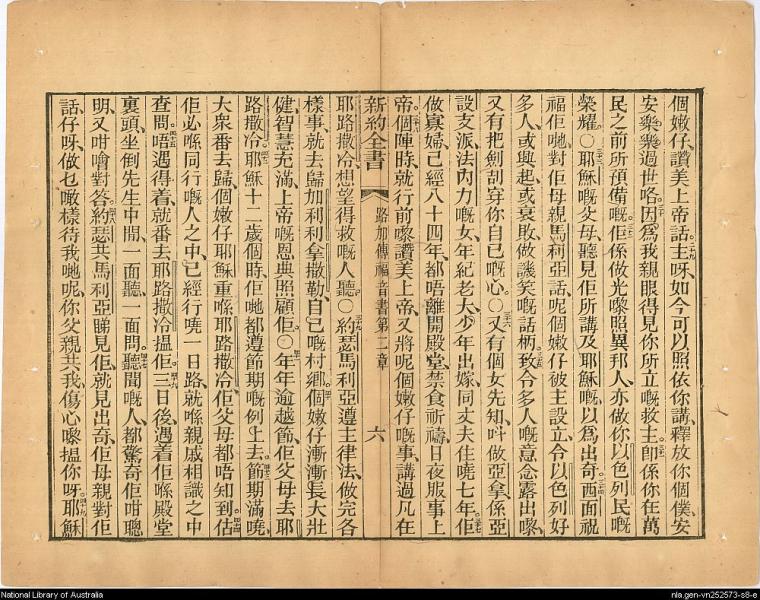 個嫩仔讚美上帝話主呀如今可以照依你講釋放你個僕安
安樂樂過世咯因爲我親眼得見你所立嘅救主卽係你在萬
民之前所預備嘅佢係做光嚟照異邦人亦做你以色列民嘅
榮耀〇耶穌嘅父母聽見佢所講及耶穌嘅以爲出奇西面祝
福佢哋對佢母親馬利亞話呢個嫩仔被主設立令以色列好
多人或興起或衰敗做譏笑嘅話柄致令多人嘅意念露出嚟
又有把劍刮穿你自己嘅心〇又有個女先知叫做亞拿係亞
設支派法內力嘅女年紀老大少年出嫁同丈夫住曉七年佢
做寡婦已經八十四年都唔離開殿堂禁食祈禱日夜服事上
帝個陣時就行前嚟讚美上帝又將呢個嫩仔嘅事講過凡在
新約全書 路加傳福音書第二章 六
耶路撒冷想望得救嘅人聽〇約瑟馬利亞遵主律法做完各
樣事就去歸加利利拿撒勒自己嘅村鄉個嫩仔漸漸長大壯
健智慧充滿上帝嘅恩典照顧佢〇年年逾越節佢父母去耶
路撒冷耶穌十二歲個時佢哋都遵節期嘅例上去節期滿曉
大衆番去歸個嫩仔耶穌重喺耶路撒冷佢父母都唔知到估
佢必喺同行嘅人之中已經行曉一日路就喺親戚相識之中
查問唔遇得着就番去耶路撒冷搵佢三日後遇着佢喺殿堂
裏頭坐倒先生中間一面聽一面問聽聞嘅人都驚奇佢咁聰
明又咁噲對答約瑟共馬利亞睇見佢就見出奇佢母親對佢
話仔呀做乜噉樣待我哋呢你父親共我傷心嚟搵你呀耶穌
National Library of Australia
nla.gen-vn252573-s8-e